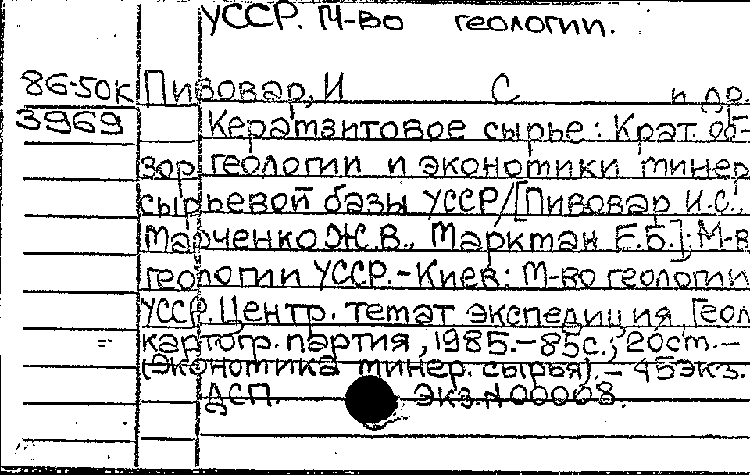 УССР. М-во геологии.
86-50к Пивовар, И С и др.
3969 Керамзитовое сырье: Крат. об-
зор геологии и экономики минер
сырьевой базы УССР/[Пивовар И.С.,
Марченко Ж.В., Марктан Е.Б.]; М-в
геологии УССР.-Киев: М-во геологии
УССР. Центр. темат экспедиция Геол
картогр. партия, 1985.-85с.; 20см.-
(Экономика минер. сырья).- 45экз.
ДСП. Экз.N00008.